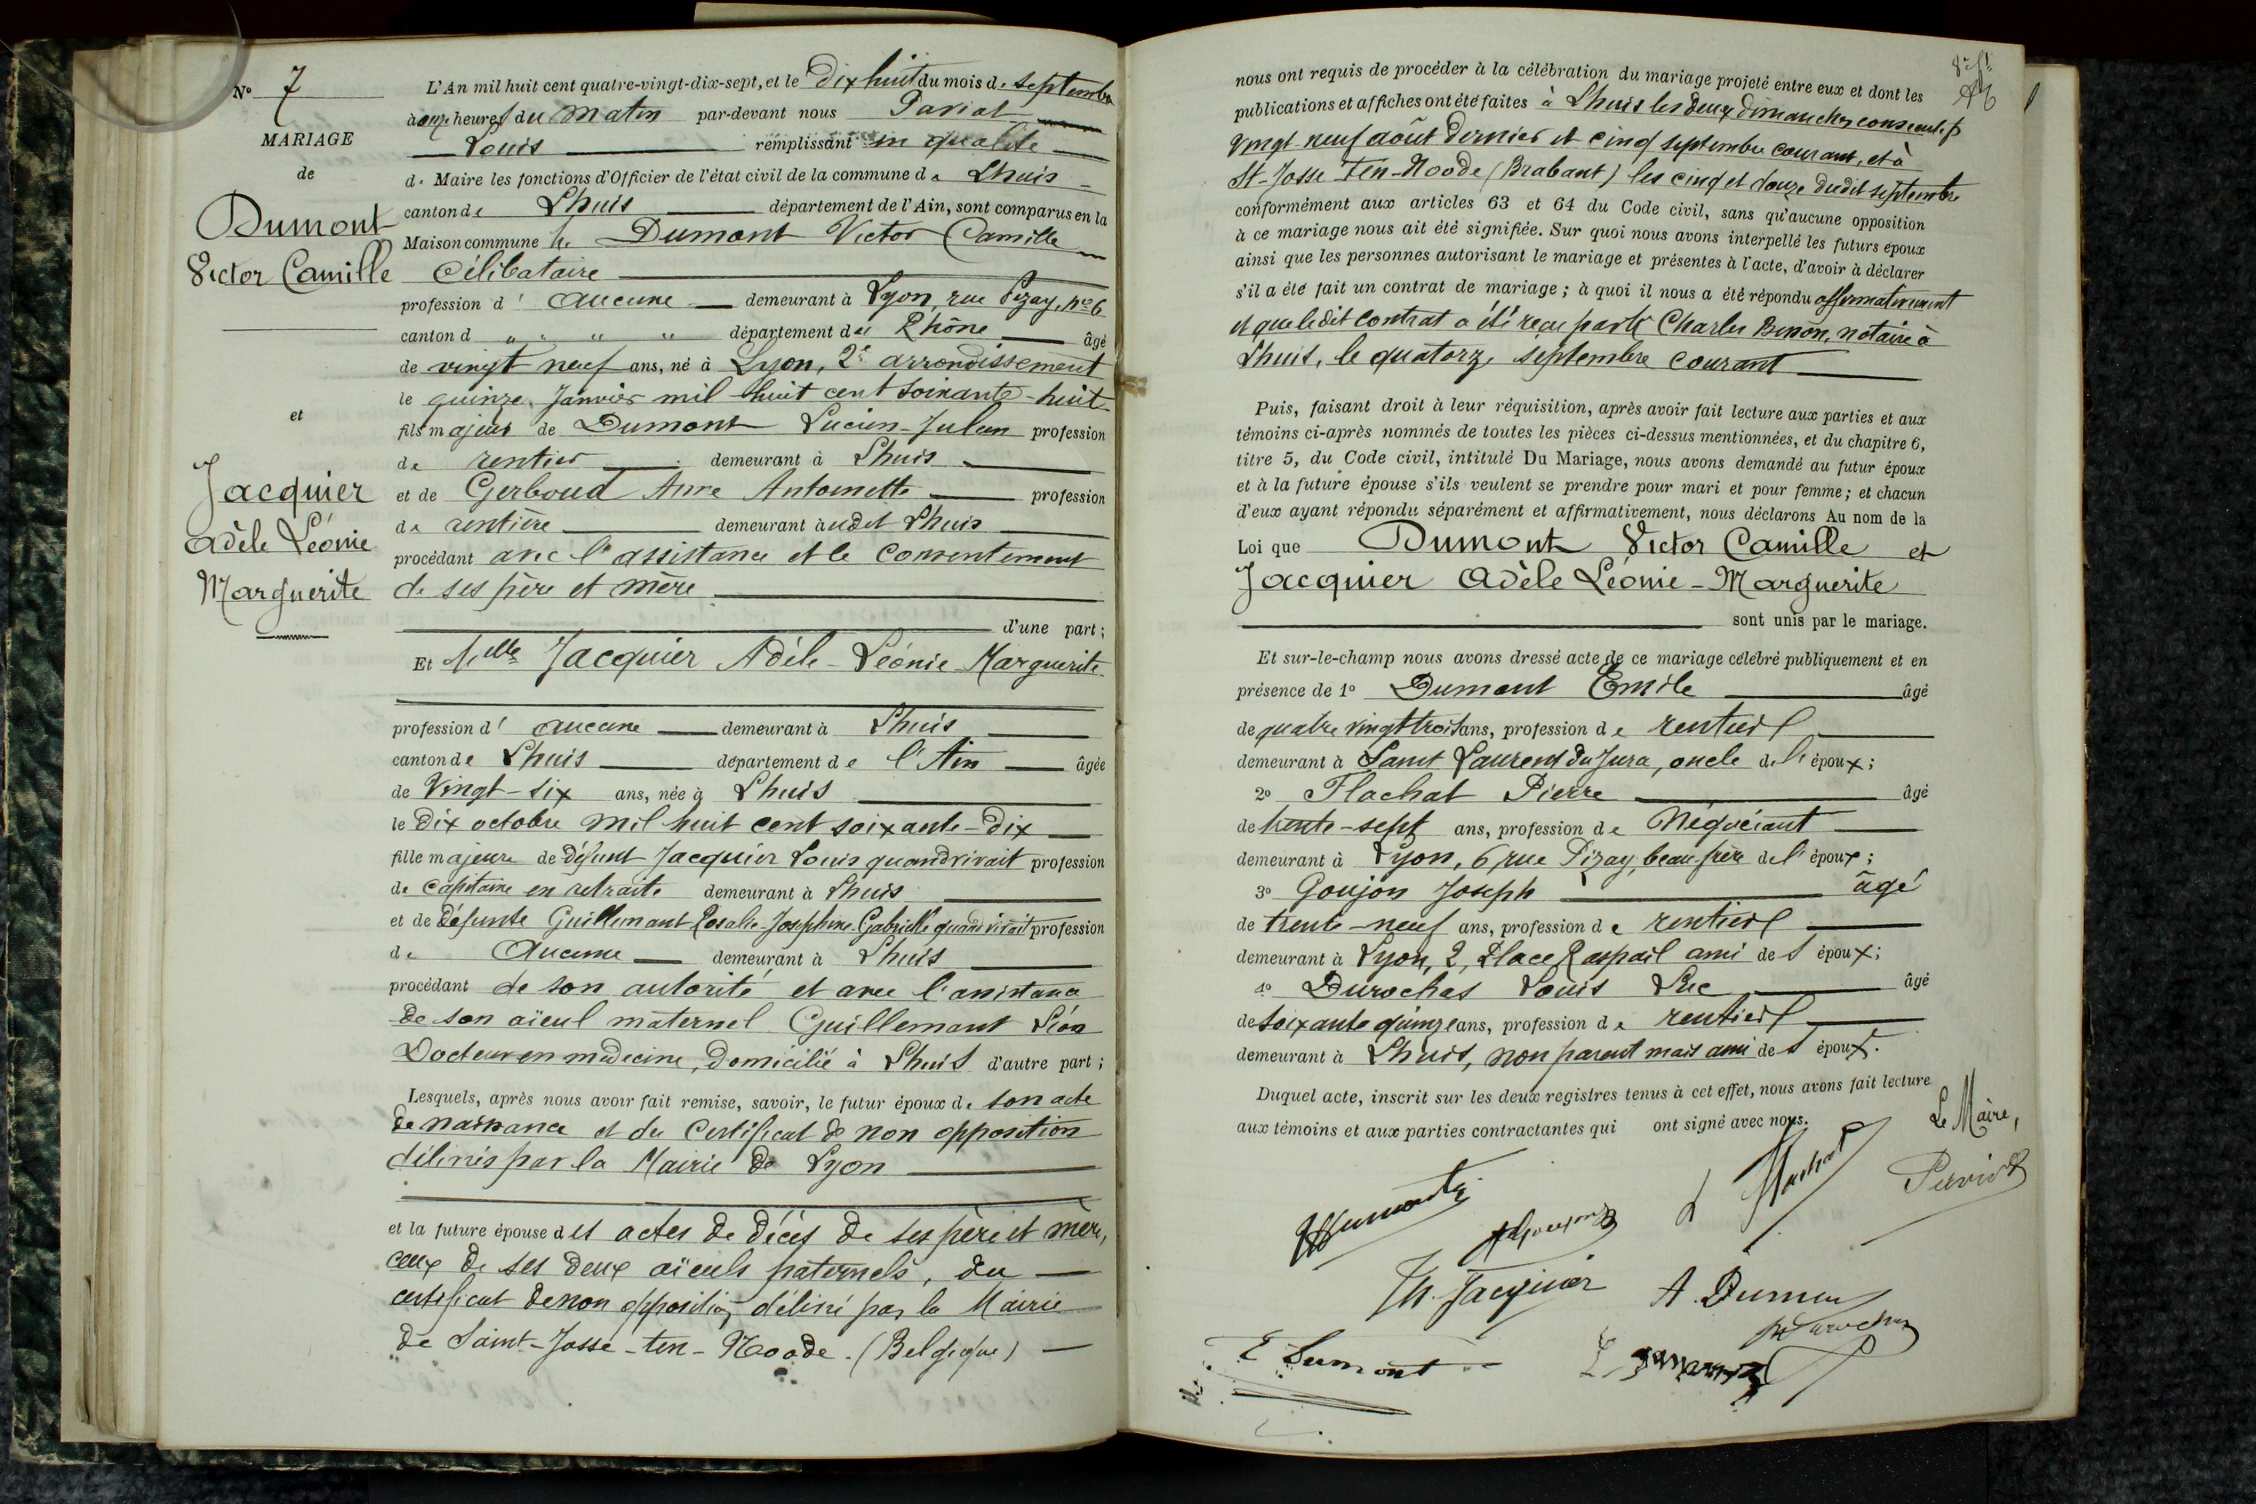 N° 7
MARIAGE
de
Dumont
Victor Camille
et
Jacquier
Adèle Léonie
Marguerite
L'An mil huit cent quatre-vingt-dix-sept, et le Dix huit du mois de septembre
à onze heures du matin par-devant nous
Louis remplissant en qualité
de Maire les fonctions d'Officier de l'état civil de la commune de Lhuis
canton de Lhuis département de l'Ain, sont comparus en la
Maison commune Dumont Victor Camille
Célibataire
profession d' aucune demeurant à Lyon, rue Pizay, n° 6
canton d " " " " département du Rhône âgé
de vingt neuf ans, né à Lyon, 2e arrondissement
le quinze Janvier mil huit cent soixante-huit
fils majeur de Dumont Lucien-Julien profession
de rentier demeurant à Lhuis
et de Gerboud Anne Antoinette profession
de rentière demeurant audit Lhuis
procédant avec l'assistance et le consentement
de ses père et mère
d'une part;
Et Melle Jacquier Adèle-Léonie Marguerite
profession d' aucune demeurant à Lhuis
canton de Lhuis département de l'Ain âgée
de Vingt-six ans, née à Lhuis
le Dix octobre mil huit cent soixante-dix
fille majeure de Défunt Jacquier Louis quand vivait profession
de capitaine en retraite demeurant à Lhuis
et de Défunte Guillemant Rosalie-Joséphine-Gabrielle quand vivait profession
de Aucune demeurant à Lhuis
procédant de son autorité et avec l'assistance
de son aïeul maternel Guillemant Léon
Docteur en médecine, domicilié à Lhuis d'autre part;
Lesquels, après nous avoir fait remise, savoir, le futur époux de son acte
de naissance et du Certificat de non opposition
délivrés par la Mairie de Lyon
et la future épouse des actes de décès de ses père et mère,
ceux de ses deux aïeuls paternels, du
certificat de non opposition délivré par la Mairie
de Saint-Josse-ten-Noode. (Belgique)
nous ont requis de procéder à la célébration du mariage projeté entre eux et dont les
publications et affiches ont été faites à Lhuis les deux dimanches consécutifs
vingt neuf août dernier et cinq septembre courant, et à
St-Josse Ten-Noode (Brabant) les cinq et douze dudit septembre
conformément aux articles 63 et 64 du Code civil, sans qu'aucune opposition
à ce mariage nous ait été signifiée. Sur quoi nous avons interpellé les futurs époux
ainsi que les personnes autorisant le mariage et présentes à l'acte, d'avoir à déclarer
s'il a été fait un contrat de mariage; à quoi il nous a été répondu affirmativement
et que ledit contrat a été reçu par Me Charles notaire à
Lhuis, le quatorze septembre courant
Puis, faisant droit à leur réquisition, après avoir fait lecture aux parties et aux
témoins ci-après nommés de toutes les pièces ci-dessus mentionnées, et du chapitre 6,
titre 5, du Code civil, intitulé Du Mariage, nous avons demandé au futur époux
et à la future épouse s'ils veulent se prendre pour mari et pour femme; et chacun
d'eux ayant répondu séparément et affirmativement, nous déclarons Au nom de la
Loi que Dumont Victor Camille et
Jacquier Adèle Léonie-Marguerite
sont unis par le mariage.
Et sur-le-champ nous avons dressé acte de ce mariage célébré publiquement et en
présence de 1° Dumont Emile âgé
de quatre vingt trois ans, profession de rentier
demeurant à Saint Laurent du Jura, oncle de l'époux;
2° Flachat Pierre âgé
de trente-sept ans, profession de Négociant
demeurant à Lyon, 6, rue Pizay, beau-frère de l'époux;
3° Goujon Joseph âgé
de trente-neuf ans, profession de rentier
demeurant à Lyon, 2, Place Raspail ami de l'époux;
4° Durochas Louis Luc âgé
de soixante quinze ans, profession de rentier
demeurant à Lhuis, non parent mais ami de l'époux.
Duquel acte, inscrit sur les deux registres tenus à cet effet, nous avons fait lecture
aux témoins et aux parties contractantes qui ont signé avec nous.
Le Maire,
Jacquier
A. Dumont
E Dumont